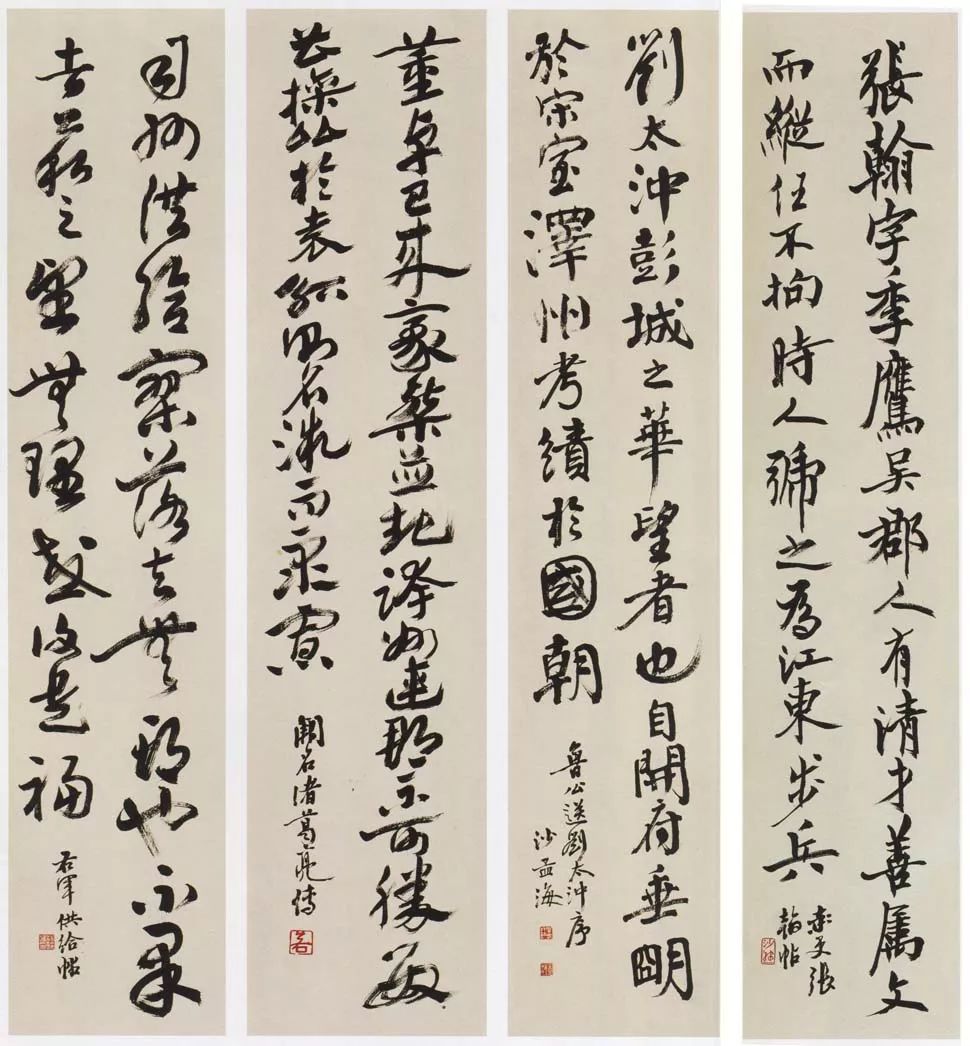 張翰字季鷹吳郡人有清才善屬文
而縱任不拘時人號之為江東步兵
率更張
翰帖
劉太沖彭城之華望者也自開府垂明
於宋室澤州考績於國朝
魯公送劉太沖序
沙孟海
董卓已來豪桀並起跨州連郡不可勝數
曹操比於袁紹則名微而眾寡
闕名諸葛亮傳
司州供給寥落去無期也不果
者公私之望無理或復是福
右軍供給帖